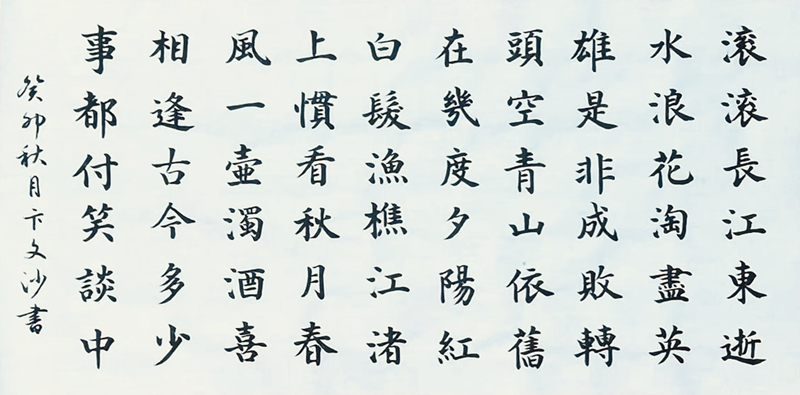 滾滾長江東逝
水浪花淘盡英
雄是非成敗轉
頭空青山依舊
在幾度夕陽紅
白髮漁樵江渚
上慣看秋月春
風一壺濁酒喜
相逢古今多少
事都付笑談中
癸卯秋月卞文沙書